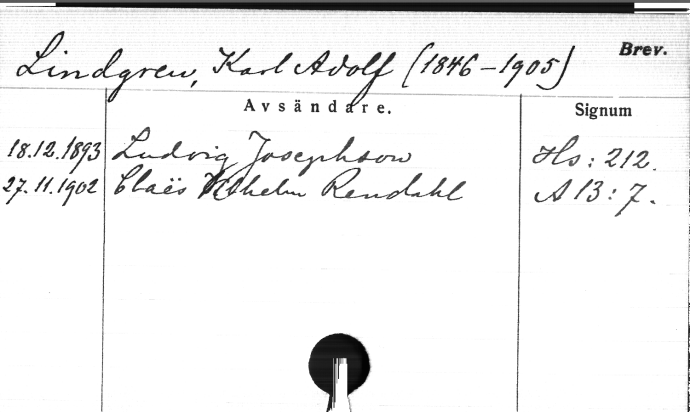 Brev.
Lindgren, Karl Adolf (1846-1905)
Avsändare. Signum
18.12.1893 Ludvig Josephson Hs: 212.
27.11.1902 Claës Vilhelm Rendahl A 13: 7.